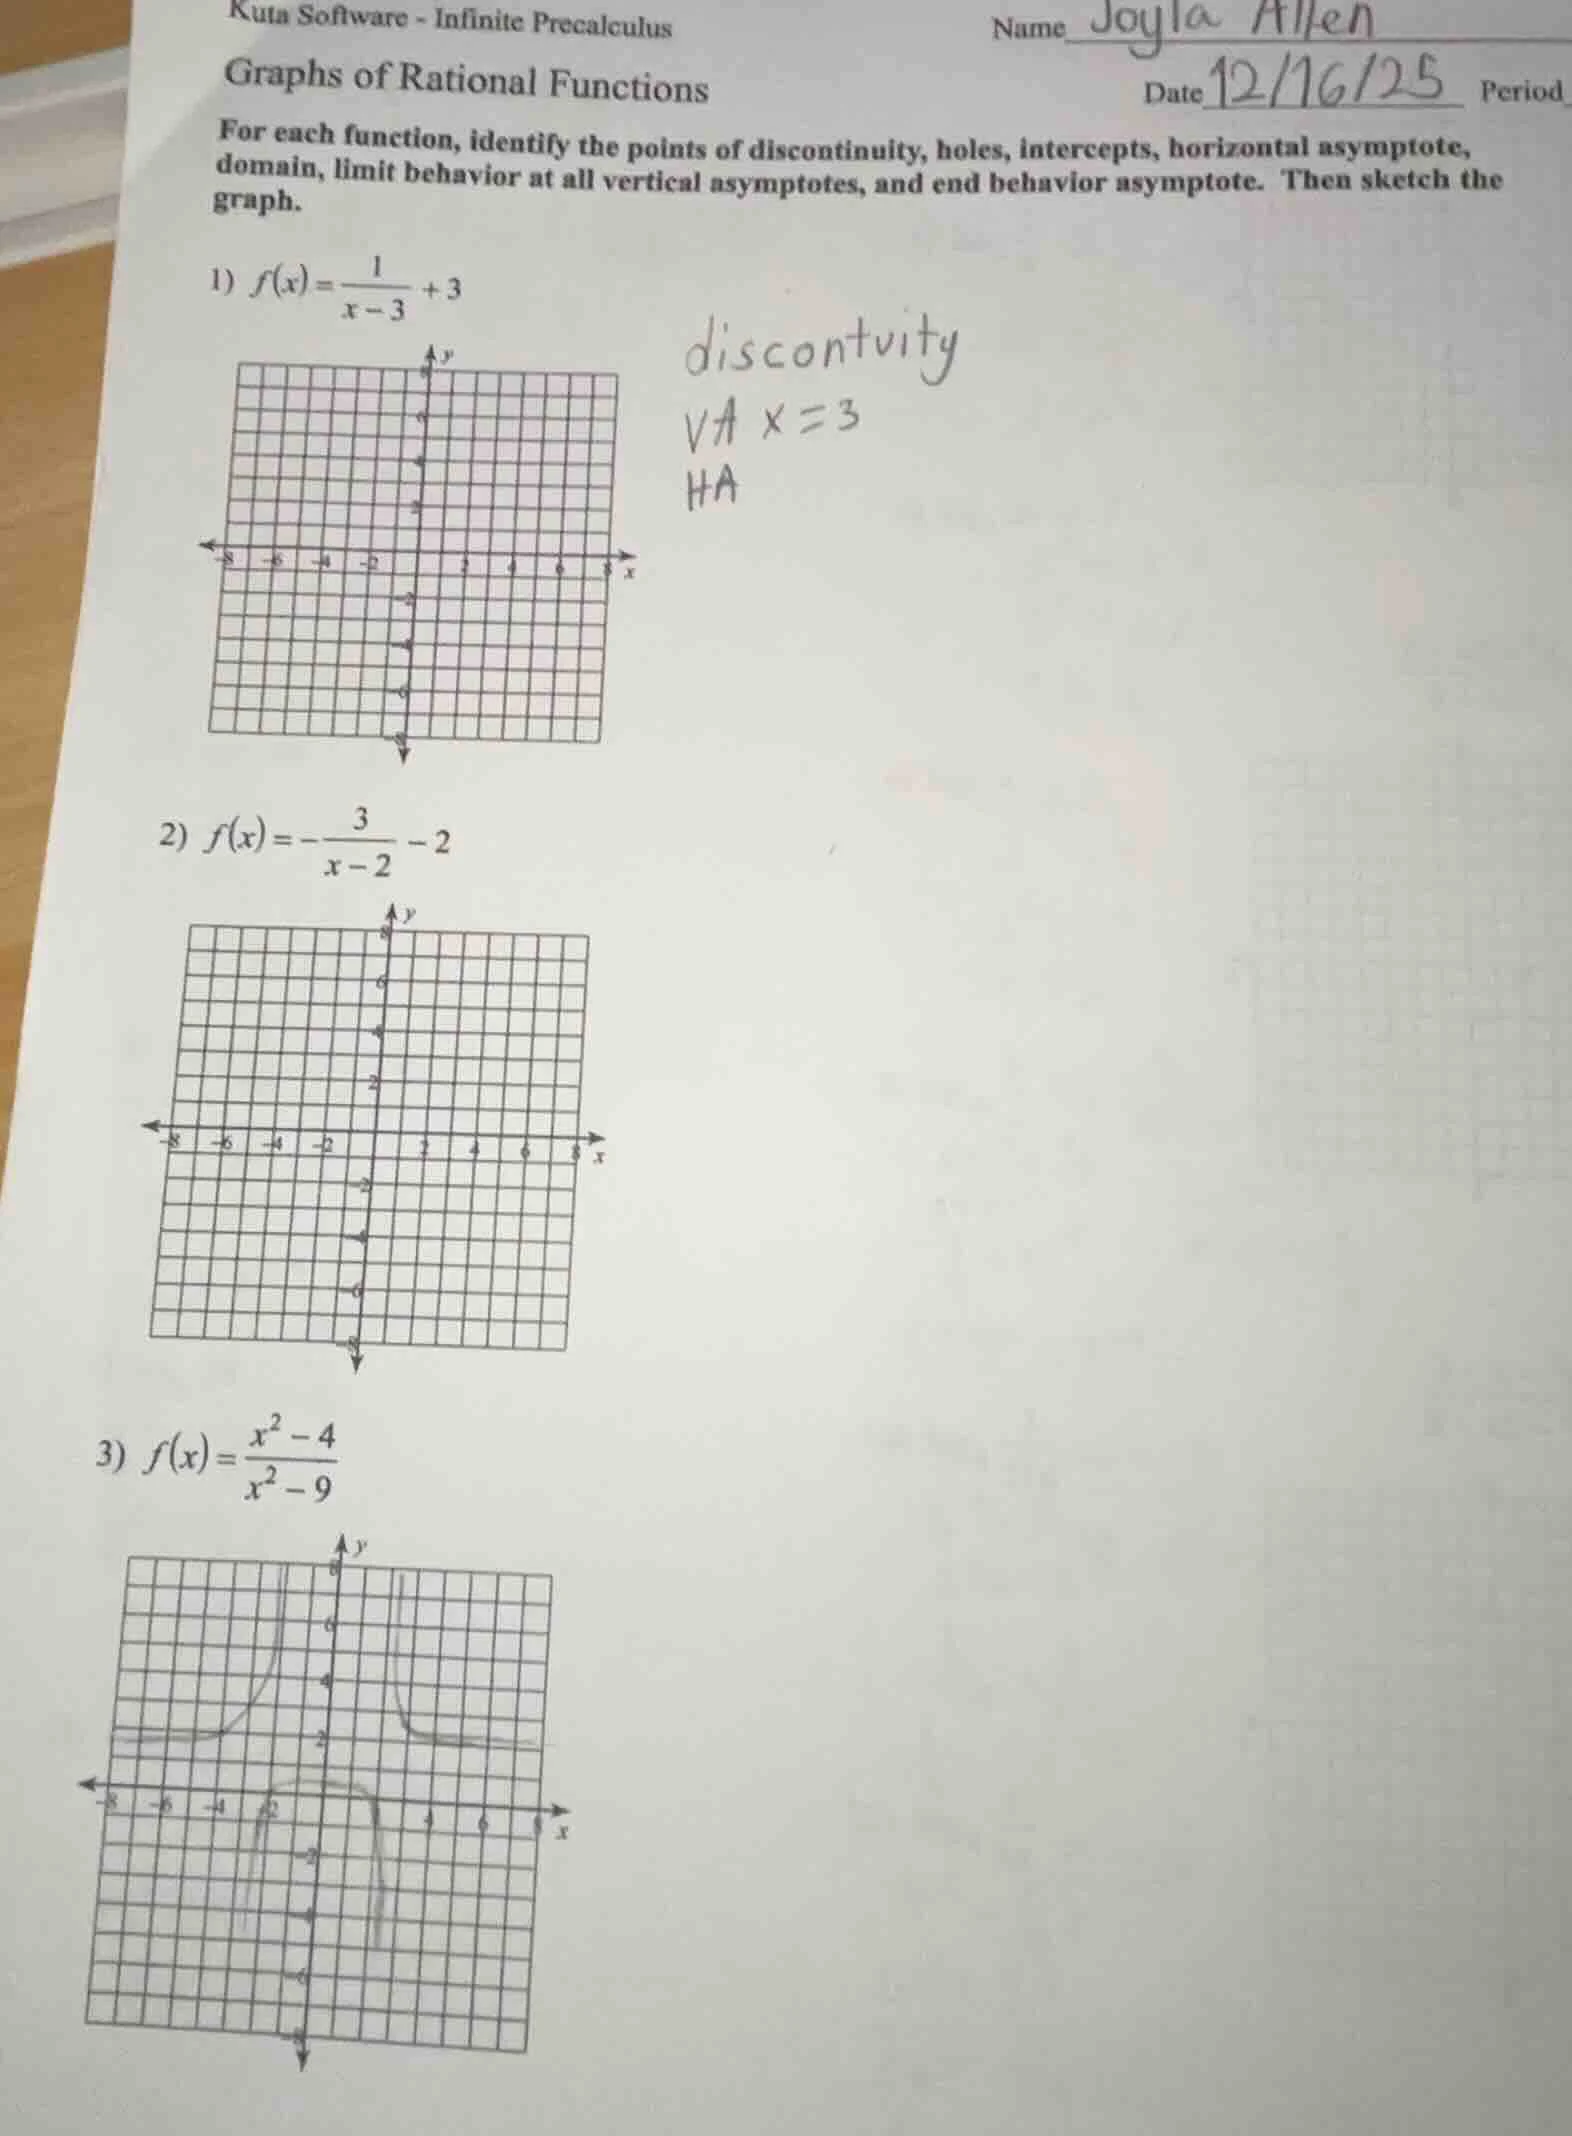 Kuta Software - Infinite Precalculus
Name Joyla Allen
Graphs of Rational Functions
Date 12/16/25 Period
For each function, identify the points of discontinuity, holes, intercepts, horizontal asymptote,
domain, limit behavior at all vertical asymptotes, and end behavior asymptote. Then sketch the
graph.
1) f(x) = 1/(x − 3) + 3
discontuity
VA x = 3
HA
y
8
6
4
2
-8 -6 -4 -2 2 4 6 8
x
-2
-4
-6
-8
2) f(x) = − 3/(x − 2) − 2
y
8
6
4
2
-8 -6 -4 -2 2 4 6 8
x
-2
-4
-6
-8
3) f(x) = (x² − 4)/(x² − 9)
y
8
6
4
2
-8 -6 -4 -2 4 6 8
x
-2
-4
-6
-8